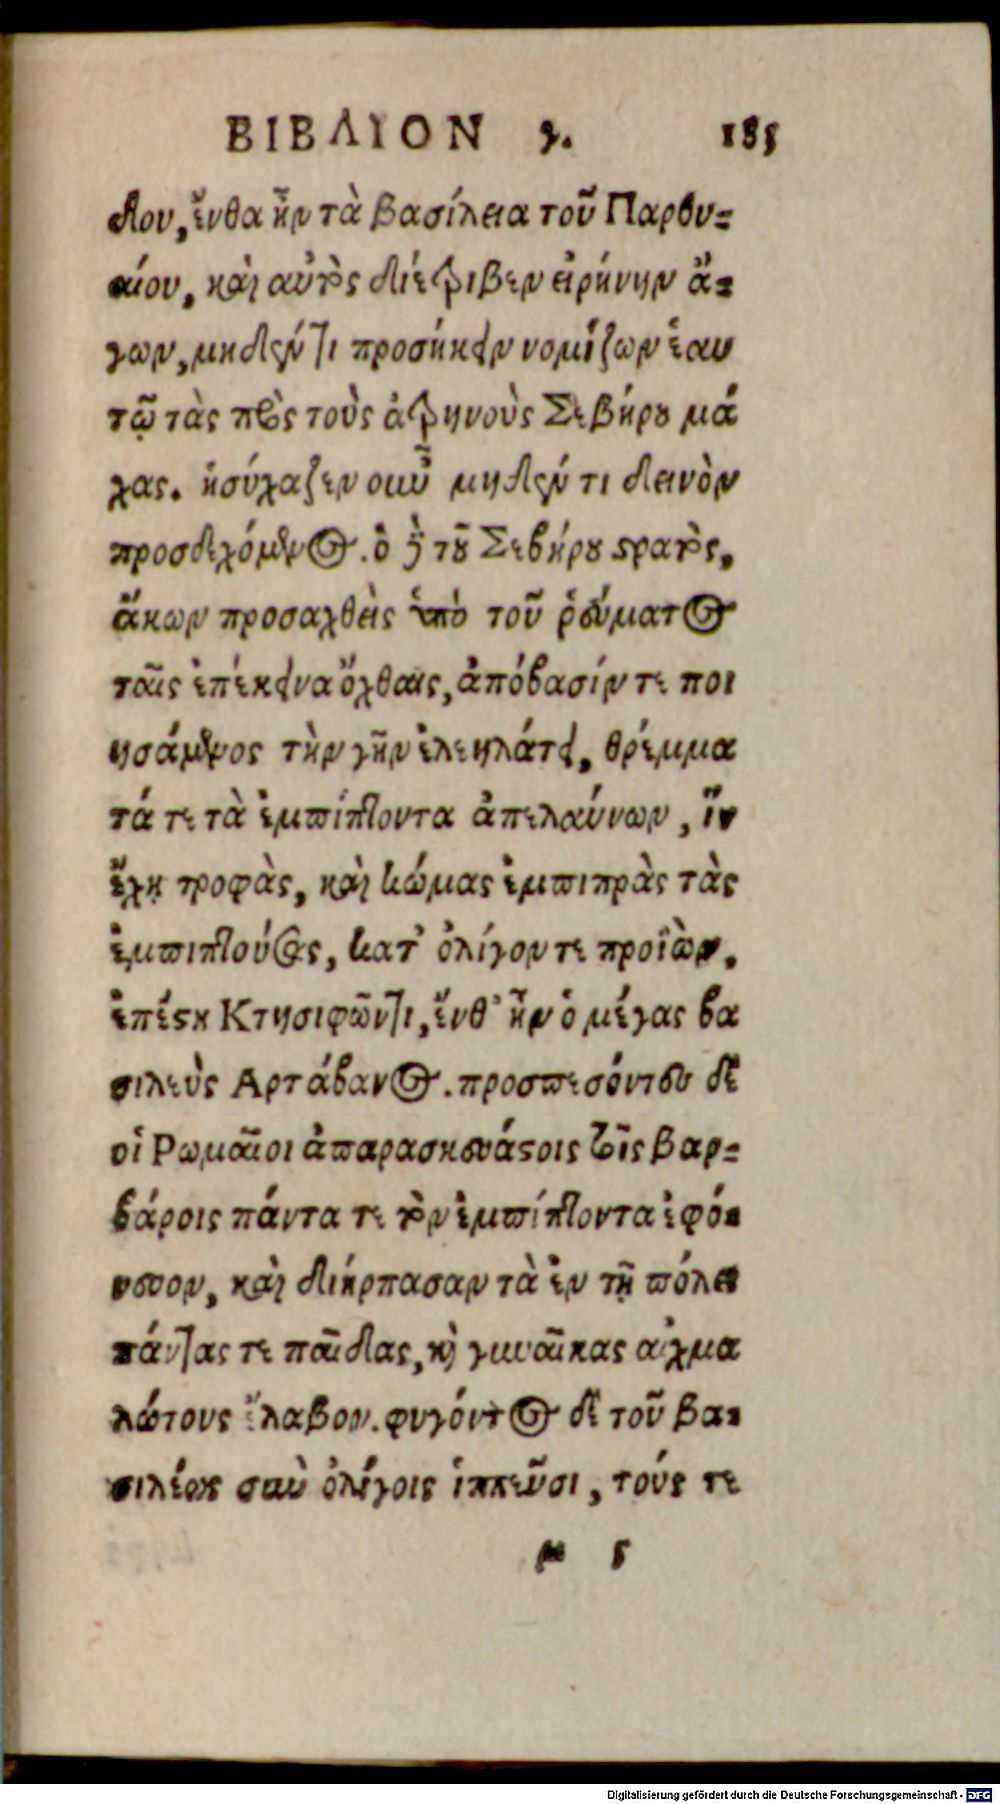 ΒΙΒΛΙΟΝ γ. 185
δου, ἔνθα ἦν τὰ βασίλεια τοῦ Παρθυ-
αίου, καὶ αὐτὸς διέτριβεν εἰρήνην ἄ-
γων, μηδέν τι προσήκειν νομίζων ἑαυ
τῷ τὰς πρὸς τοὺς ἀτρηνοὺς Σεβήρου μά
χας. ἡσύχαζεν οὖν μηδέν τι δεινὸν
προσδεχόμενος. ὁ δὲ τοῦ Σεβήρου στρατὸς,
ἄκων προσαχθεὶς ὑπὸ τοῦ ῥεύματος
ταῖς ἐπέκεινα ὄχθαις, ἀπόβασίν τε ποι
ησάμενος τὴν γῆν ἐλεηλάτει, θρέμμα
τά τε τὰ ἐμπίπτοντα ἀπελαύνων, ἵν
ἔχῃ τροφὰς, καὶ κώμας ἐμπιπρὰς τὰς
ἐμπιπτούσας, κατ' ὀλίγον τε προϊὼν,
ἐπέστη Κτησιφῶντι, ἔνθ' ἦν ὁ μέγας βα
σιλεὺς Αρτάβανος. προσπεσόντες δὲ
οἱ Ρωμαῖοι ἀπαρασκευάστοις τοῖς βαρ-
βάροις πάντα τε τὸν ἐμπίπτοντα ἐφό-
νευον, καὶ διήρπασαν τὰ ἐν τῇ πόλει
πάντας τε παῖδας, καὶ γυναῖκας αἰχμα
λώτους ἔλαβον. φυγόντος δὲ τοῦ βα-
σιλέως σὺν ὀλίγοις ἱππεῦσι, τούς τε
μ 5
Digitalisierung gefördert durch die Deutsche Forschungsgemeinschaft - DFG